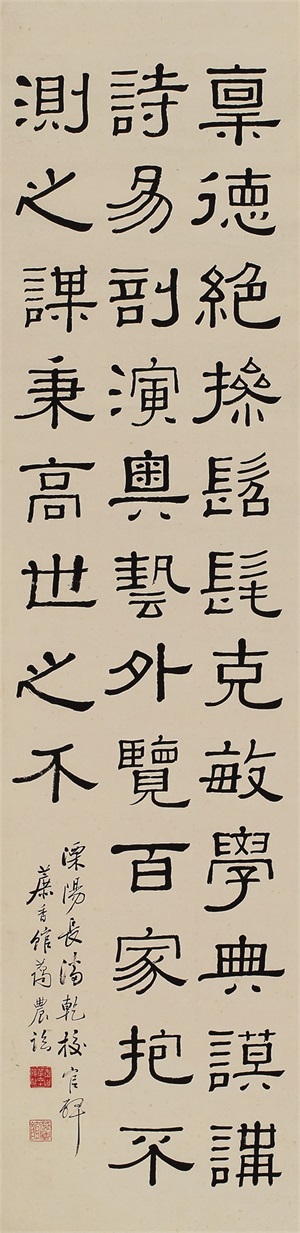 稟德絕操髫髦克敏學典謨講
詩易剖演奧藝外覽百家抱不
測之謀秉高世之不
溧陽長潘乾校官碑
蔗香館藹農臨